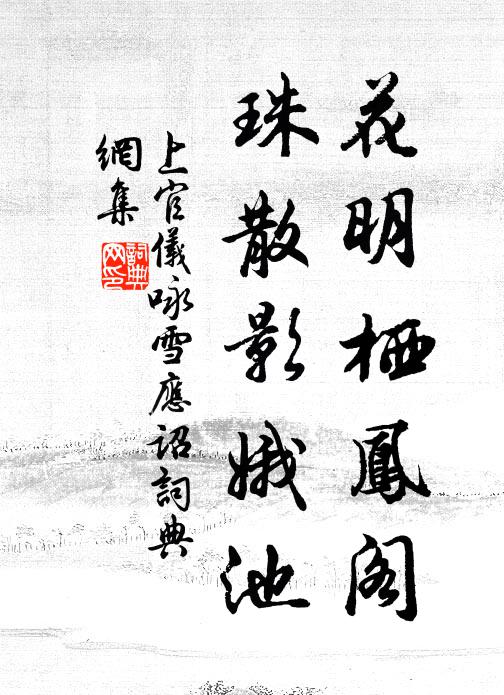 花明栖鳳閣
珠散影娥池
上官儀咏雪應詔詞典
網集
詞典
网印